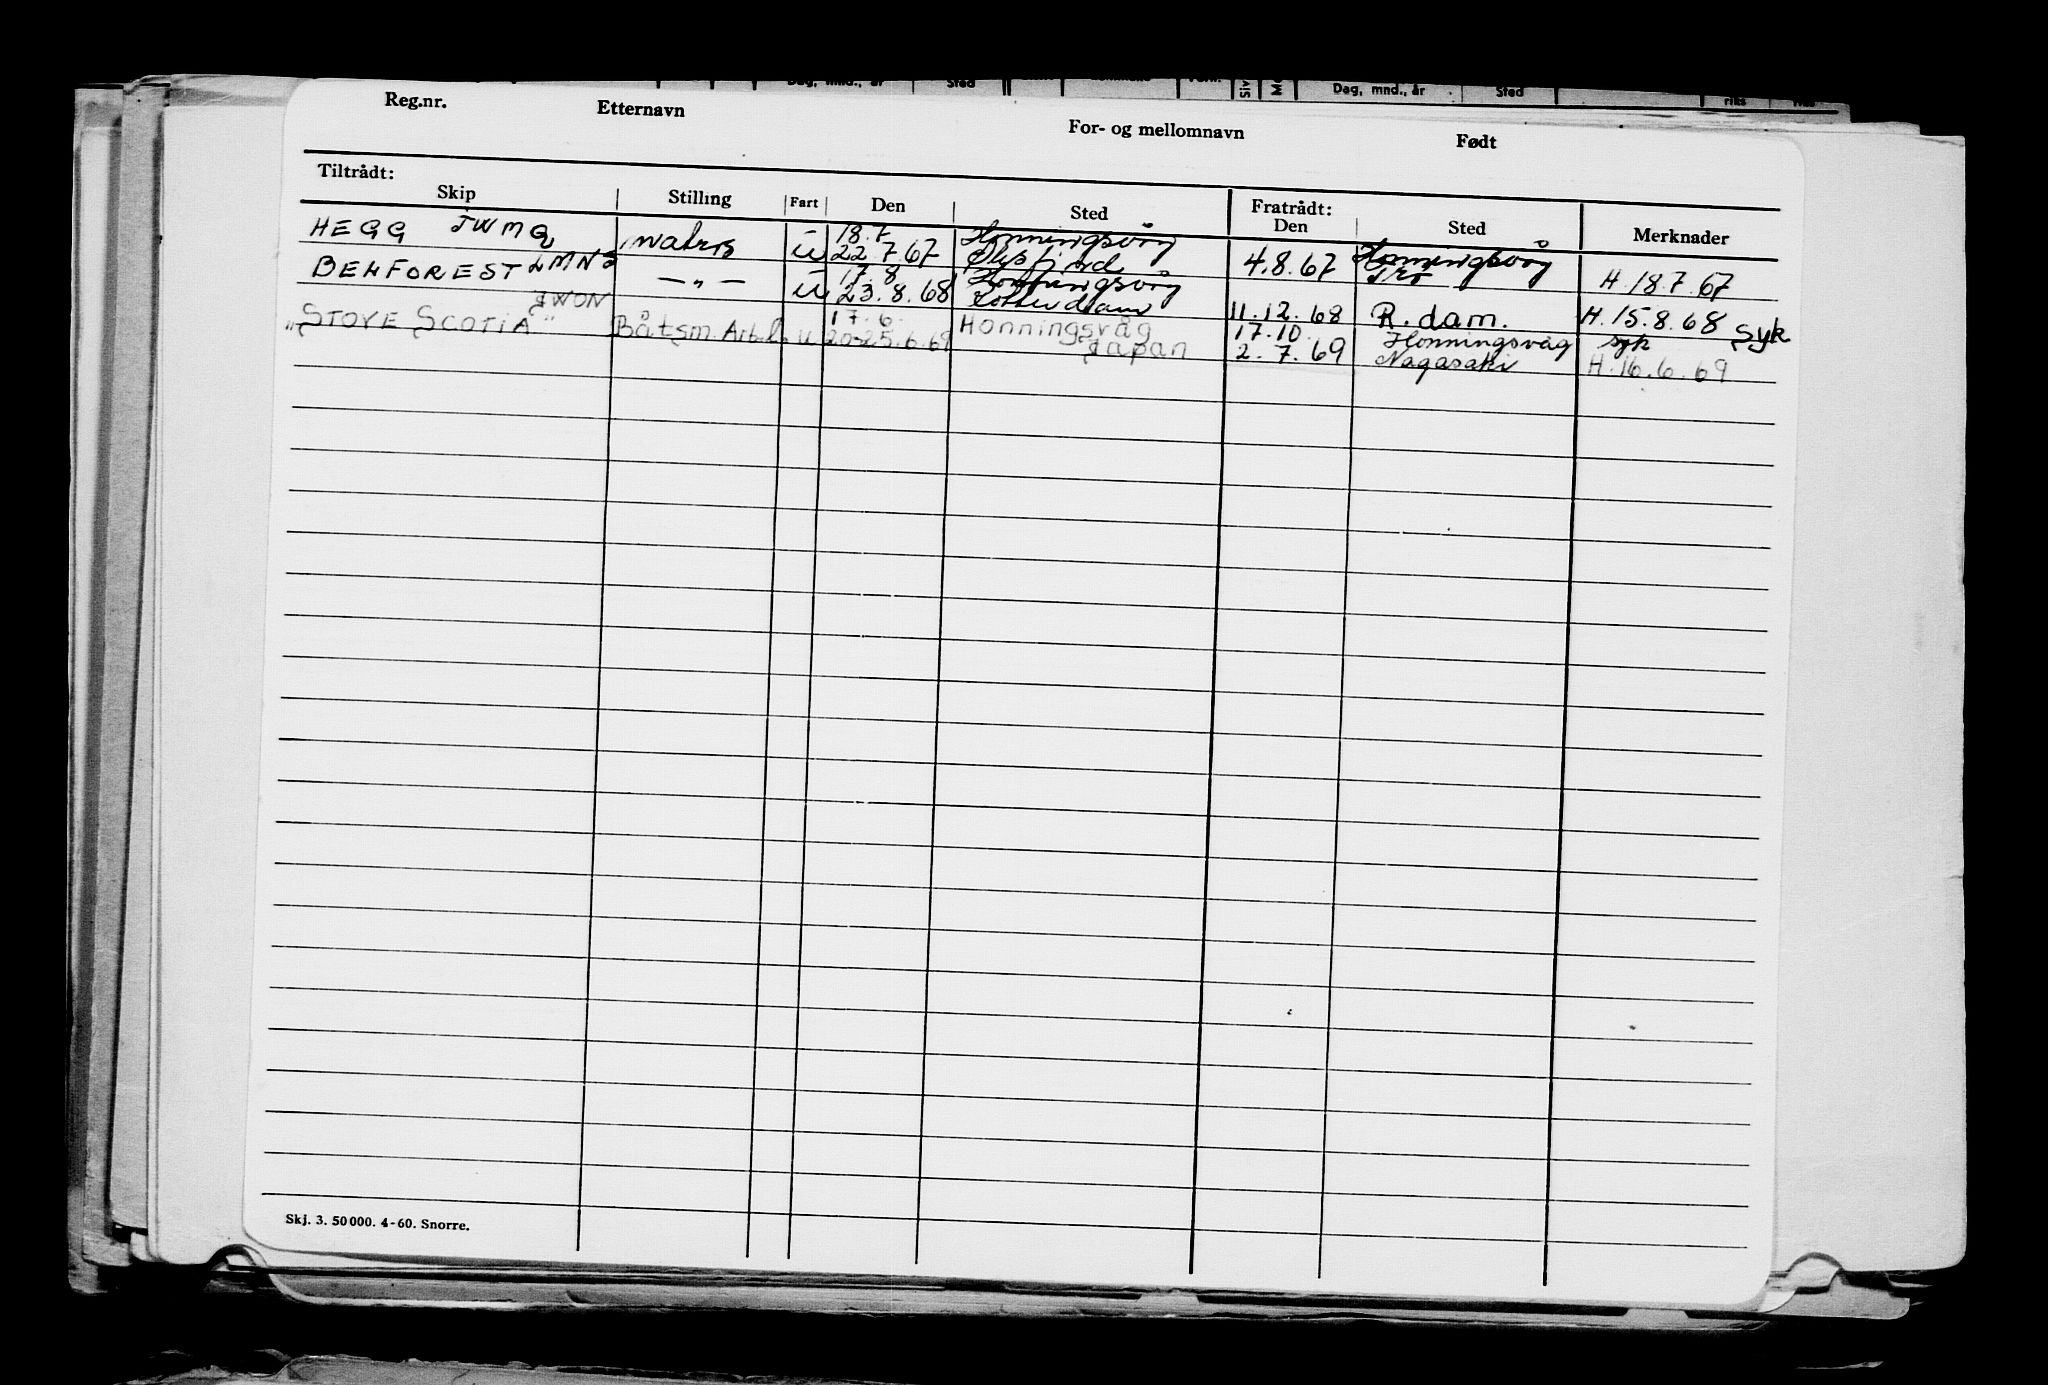 Dag, mnd., år Sted Dag, mnd., år Sted
Reg.nr. Etternavn For- og mellomnavn Født
Tiltrådt: Fratrådt:
Skip Stilling Fart Den Sted Den Sted Merknader
HEGG JWMQ matros u 18.7 Honningsvåg
22.7.67 4.8.67 Honningsvåg H.18.7.67
BENFOREST LMNS — " — u 17.8 Honningsvåg
23.8.68 Rotterdam 11.12.68 R.dam. H.15.8.68 syk
JWON 17.6. Honningsvåg 17.10. Honningsvåg syk
"STOVE SCOTIA" Båtsm. u 20-25.6.69 Japan 2.7.69 Nagasaki H.16.6.69
Skj. 3. 50000. 4-60. Snorre.